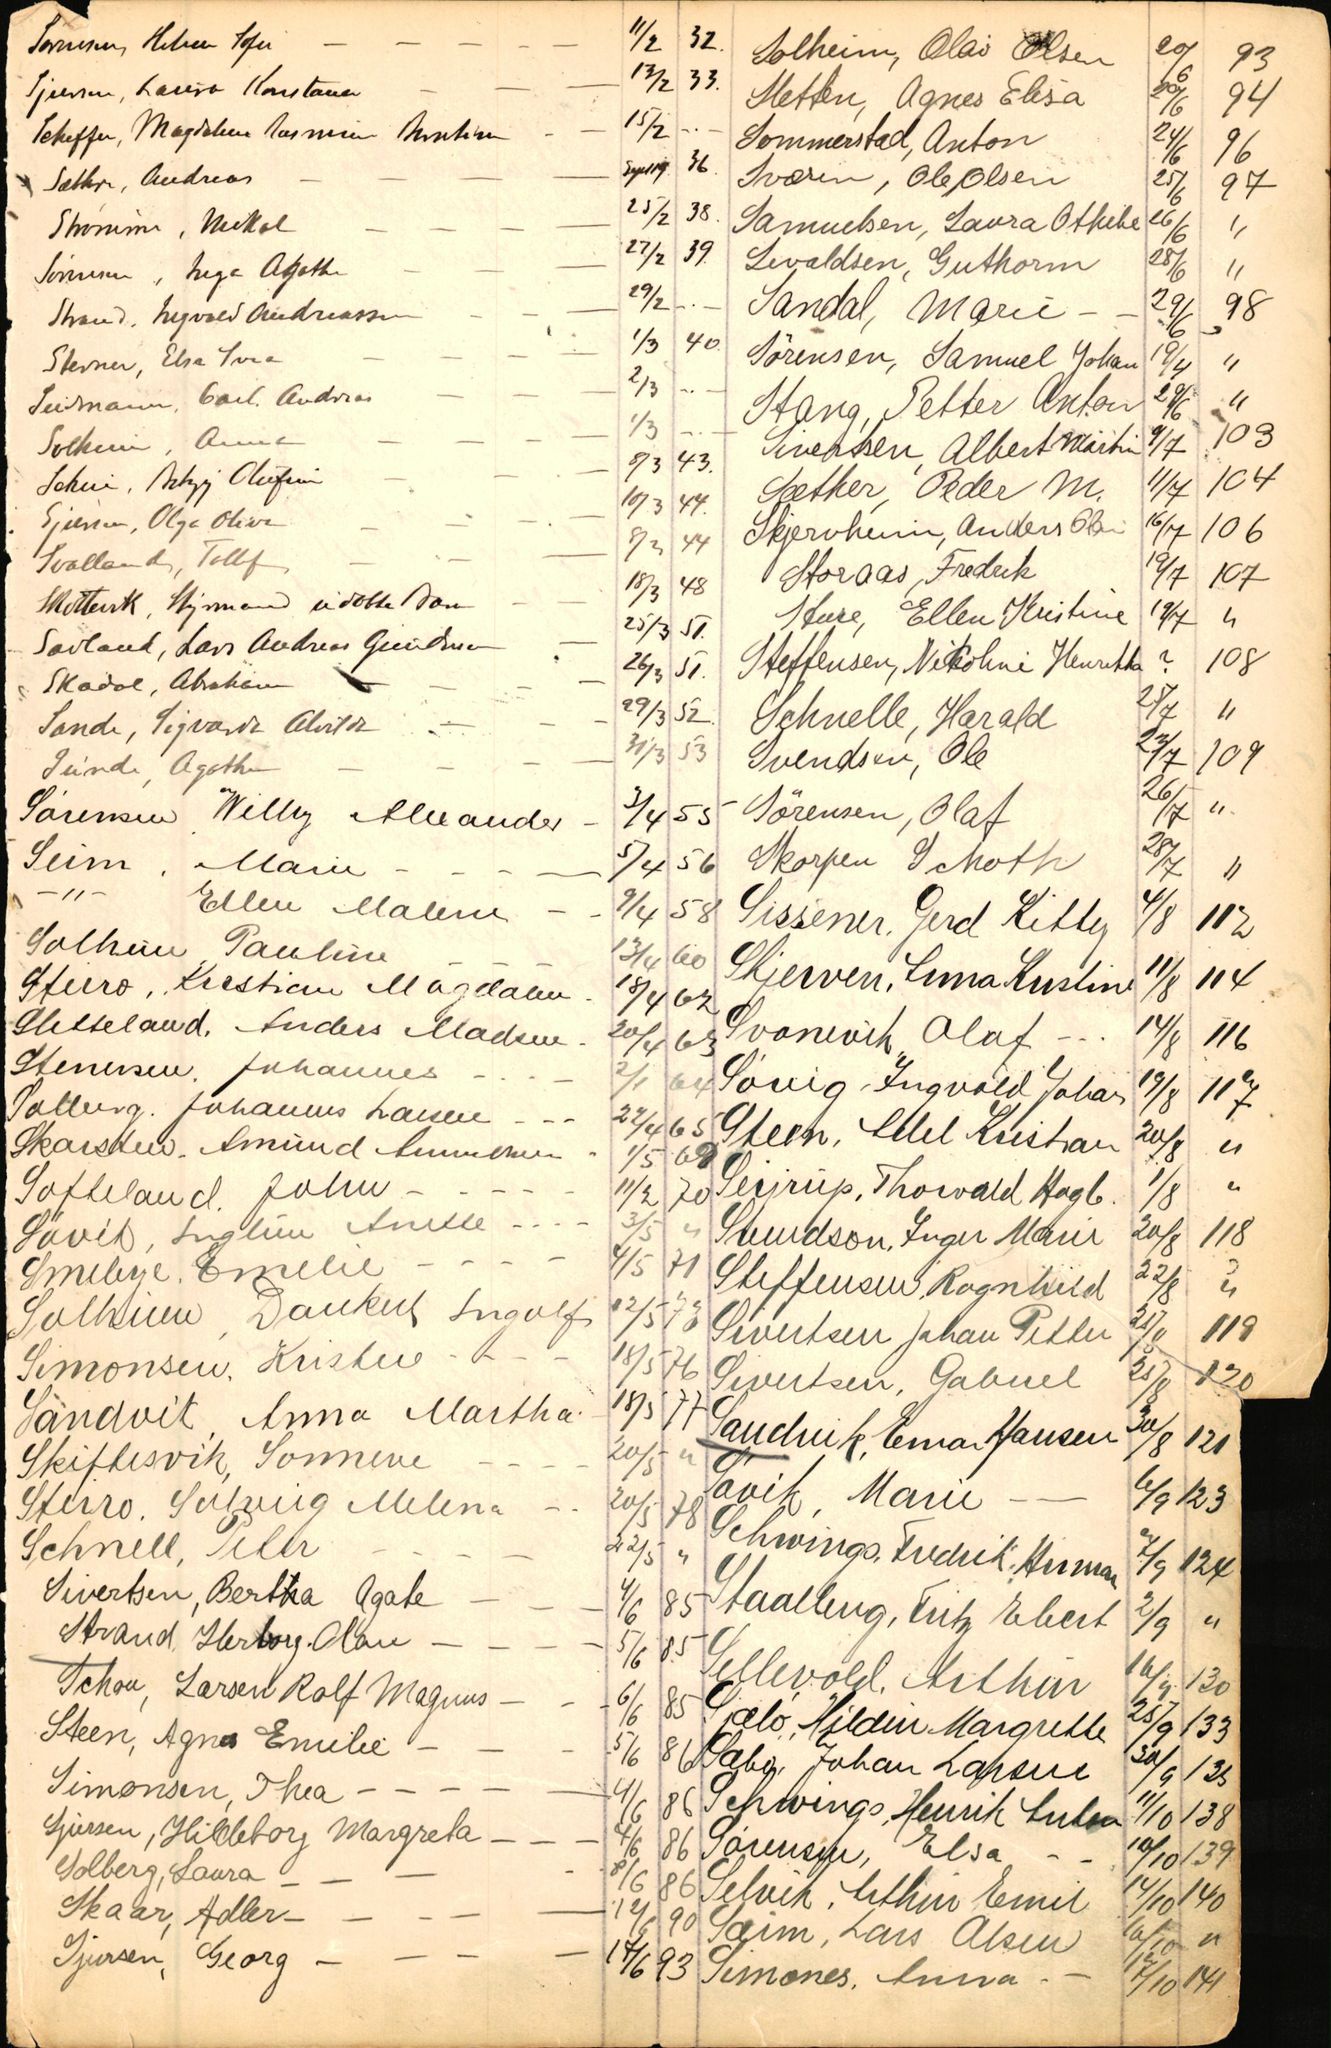 Sørensen, Helene Sofie — — — — — 11/2 32.
Sjursen, Laura Konstance — — — 12/2 33.
Scheffer, Magdalene - - 15/2 - -
Sæthre, Andreas — — — — 36.
Strømme, Mikal — — — 25/2 38.
Sørensen, Inga Agathe — — 27/2 39.
Strand, Ingvald Andreassen — — 29/2 - -
Sterner, Elsa — — — — 1/3 40
Carl Andreas — — — 2/3 - -
Solheim, Anna — — — — 1/3 - -
Olufine — — — 8/3 43.
Sjursen, Olga Olivia — — — 10/3 44.
Svalland, Tollef — — 8/3 44
Skottevik, — — 18/3 48
Sævland, Lars Andreas Gundersen — 25/3 51.
Skadal, Abraham — — 26/3 51.
Sande, Sigvarda Alvilda — — — 29/3 52
Sunde, Agathe — — — — 31/3 53
Sørensen Willy Alexander — 3/4 55
Seim, Marie - - - — 5/4 56
—"— Ellen Malene - - 9/4 58
Solheim Pauline 13/4 60
Steiro, Kristiane Magdalene - 18/4 62
Anders Madsen - 20/4 63
Stenersen, Johannes - - - - 2/1 64
Solberg, Johannes Larsen - - - 24/4 65
Skarsten, Amund - 1/5 69
Softeland, John - - - - - 11/2 70
Søvik, Anette - - - - 3/5 "
Emelie - - - - 4/5 71
Solheim, Dankert Ingolf 12/5 73
Simonsen, Kristine - - - - 18/5 76
Sandvik, Anna Martha - 18/5 77
Skiftesvik, Sonneve - - - - 20/5 "
Steiro, Solveig Melena - - 20/5 78
Schnell, Peter - - - - - 22/5 "
Sivertsen, Bertha Agate — — — 4/6 85
Strand, Herborg Olave — — — — 5/6 85
Schau, Larsen Rolf Magnus — — 6/6 85
Steen, Agnes Emilie — — — 5/6 86
Simonsen, Thea — — — — — 4/6 86
Sjursen, Hildeborg Margreta — — — 4/6 86
Solberg, Laura — — — - 8/6 86
Skaar, Adler — — — — — 12/6 90
Sjursen, Georg — — — — — 17/6 93
Solheim, Olai Olsen 20/6 93
Sletten, Agnes Elisa 20/6 94
Sommerstad, Anton 24/6 96
Sværen, Ole Olsen 25/6 97
Samuelsen, Laura Othilie 26/6 "
Sevaldsen, Guthorm 28/6 "
Sandal, Marie — — 29/6 98
Sörensen, Samuel Johan 19/4 "
Stang, Petter Anton 29/6 "
Sivertsen, Albert Martin 9/7 103
Sæther, Peder M. 11/7 104
Skjervheim, Anders Olai 16/7 106
Storaas, Fredrik 19/7 107
Sture, Ellen Kristine 19/7 "
Steffensen, Nikoline Henrikka ? 108
Schnelle, Harald 25/7 "
Svendsen, Ole 23/7 109
Sörensen, Olaf 26/7 "
Skorpen 28/7 "
Sissener, Gerd Kitty 4/8 112
Skjerven, Anna Kristine 11/8 114
Svanevik Olaf - - - 14/8 116
Sövig, Ingvald Johan 19/8 117
Steen, Adel Kristian 20/8 "
Sejrup, Thorvald Hagb. 1/8 "
Svendson, Inger Marie 20/8 118
Steffensen, Ragnhild 22/8 "
Sivertsen Johan Petter 119
Sivertsen, Gabriel 25/8 120
Sandvik, Einar Hansen 30/8 121
Søvik, Marie — — 6/9 123
Schwings, Fredrik Herman 124
Staalberg, Fritz Ebert 2/9 "
Sellevold, Arthur 16/9 130
Sjælø, Margrethe 25/9 133
Sæbø, Johan Larsen 30/9 135
Schwings, Henrik Anton 11/10 138
Sørensen, Elsa - - 10/10 139
Selvik, Arthur Emil 14/10 140
Sæim, Lars Olsen 16/10 "
Simones, Anna - — 17/10 141